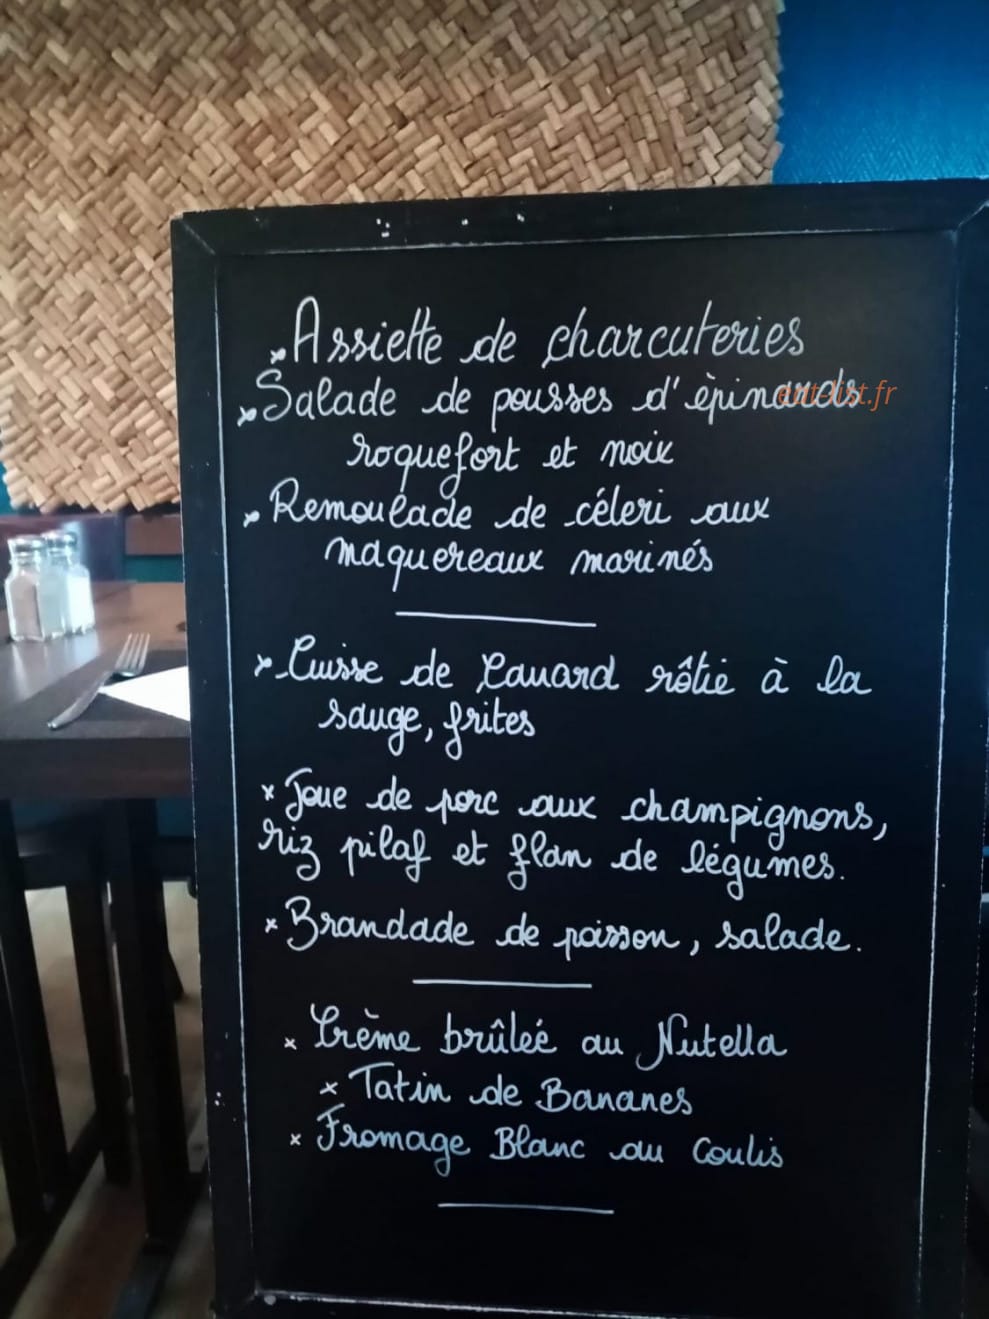 × Assiette de charcuteries
× Salade de pousses d'èpinards
roquefort et noix
× Remoulade de céleri aux
maquereaux marinés
× Cuisse de Canard rôtie à la
sauge, frites
× Joue de porc aux champignons,
riz pilaf et flan de légumes.
× Brandade de poisson, salade.
× Crème brûleé au Nutella
× Tatin de Bananes
× Fromage Blanc au Coulis
eat-list.fr